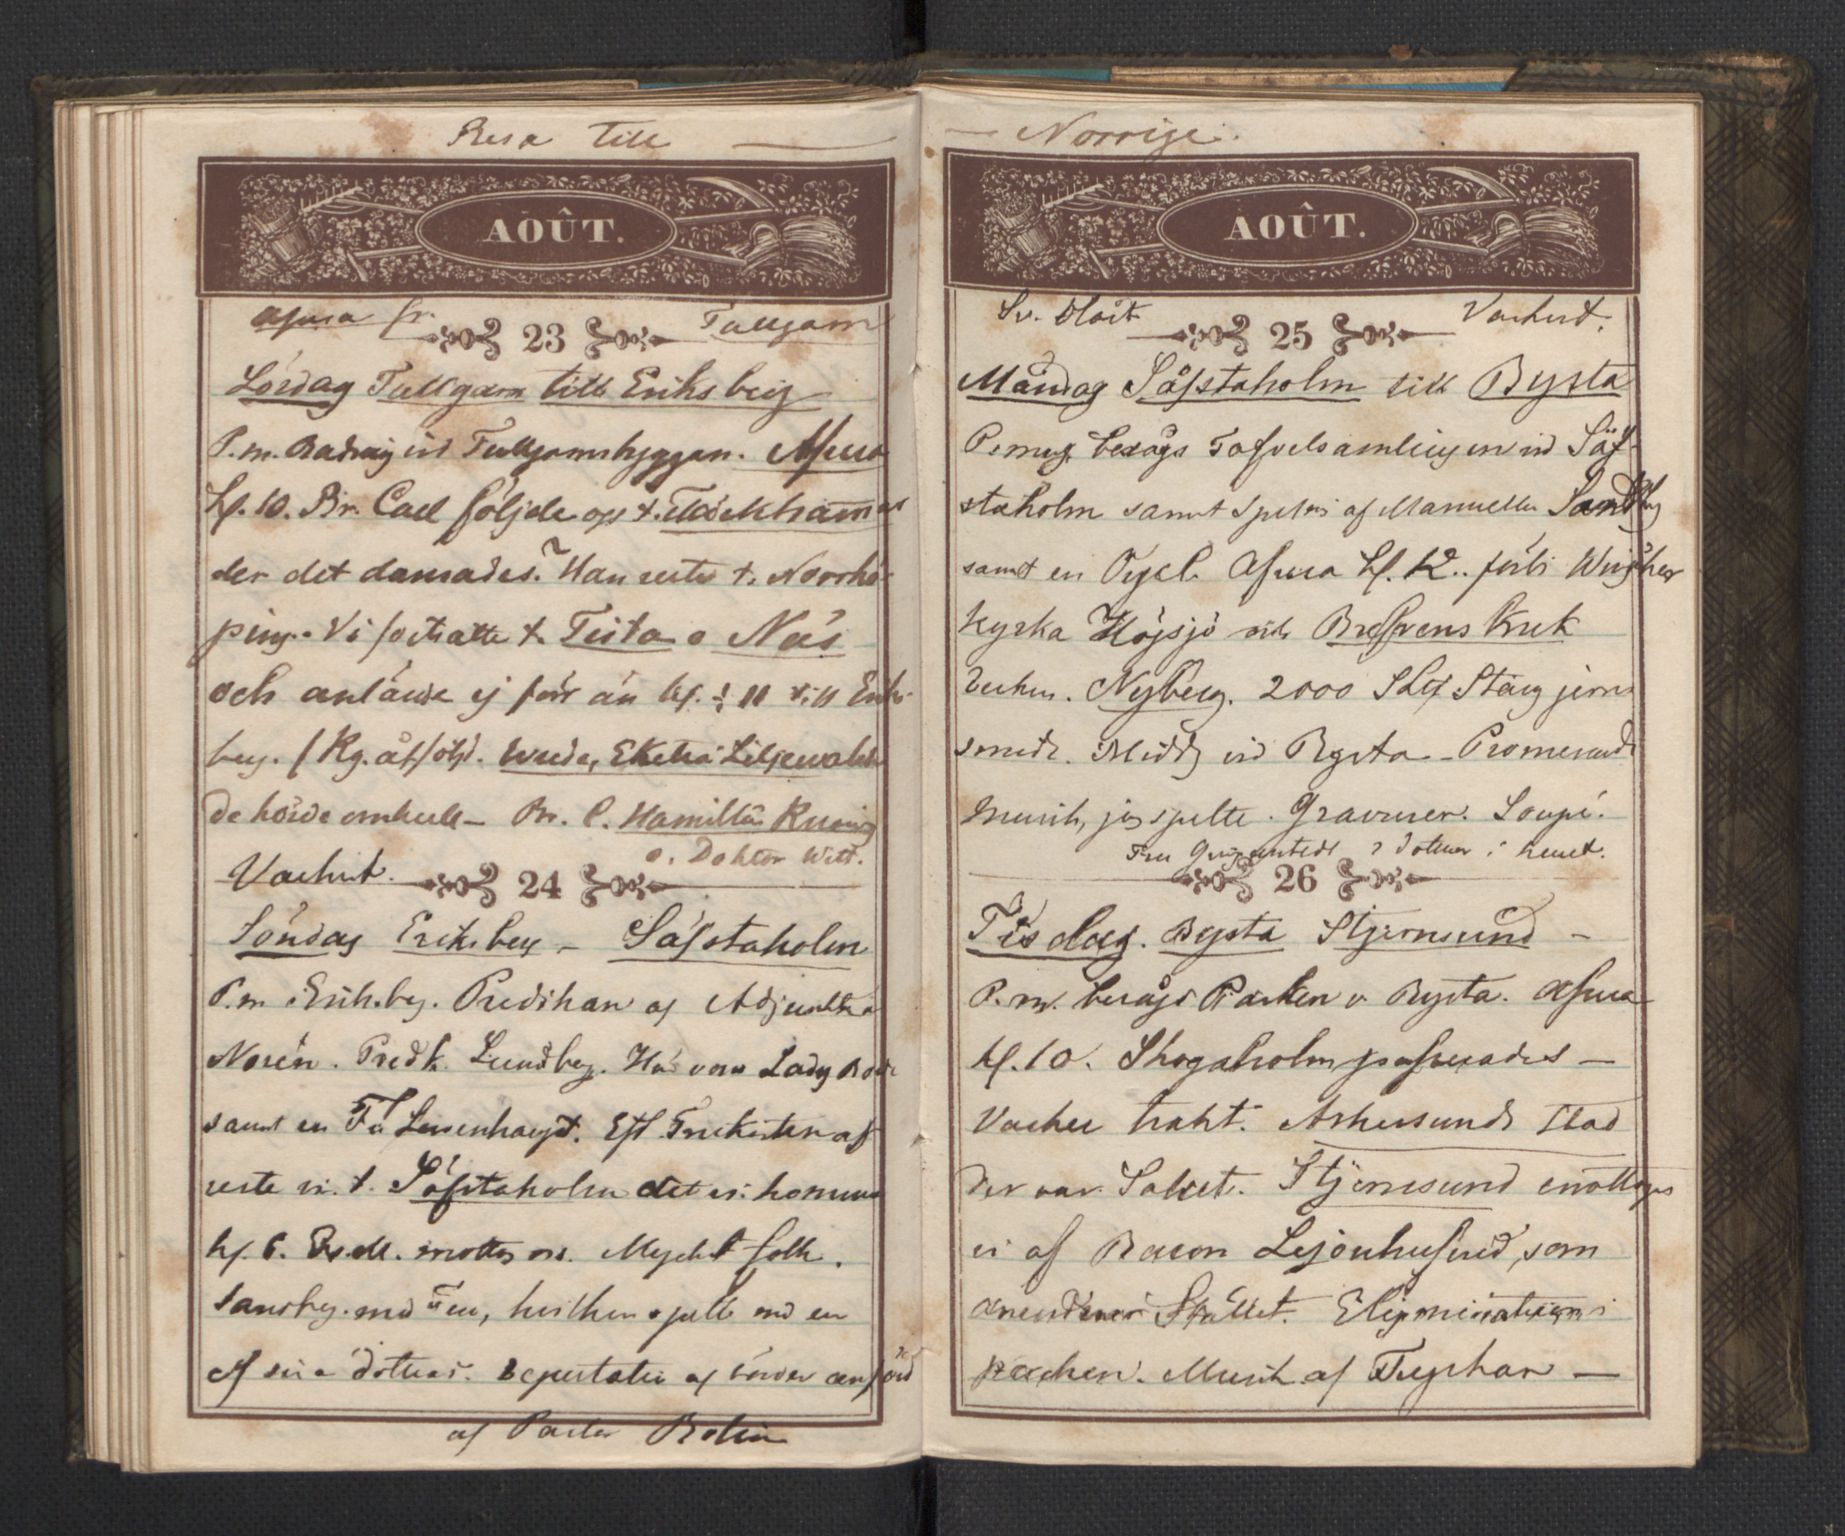 Resa till
AOÛT.
afresa fr. 23 Tullgarn
Lördag Tullgarn till Eriksberg
P.m. Badning vid Tullgarnsbryggan. Afresa
kl. 10. Br. Carl följde oss t.
der det dansades. Han reste t. Norrkö-
ping. Vi fortsatte t. Tista o Näs
och anlände ej förr än kl. ½ 11 till Eriks-
berg. / Rg. åtföljd. Wrede, Liljewalch
de hörde omkull – Br. C. Hamilton
o. Doktor Witt.
Vackert. 24
Söndag Eriksberg – Säfstaholm
P.m. i Eriksbg. Predikan af Adjunkten
Norén. Predk. Lundberg. Här voro Lady
samt en Eft. Frukosten af
reste vi t. Säfstaholm det vi komma
kl. 6. mottog oss. Mycket folk.
med Fru, hvilken spelte med en
af sina döttrar. Deputation af bönder anförd
af Pastor
— Norrige.
AOÛT.
25 Vackert.
Måndag Säfstaholm till Bysta
besågs Tafvelsamlingen vid Säf-
staholm samt Spelning af Mamsell
samt en Orgel. Afresa kl. 12.. förbi Wingåker
kyrka Högsjö och Brefvens Bruk
Nyberg. 2000 Stångjern
smide. Middg vid Bysta – Promenad
Musik, jag spelte. Gravurer. Soupé.
Fru 2 döttrar i huset.
26
Tisdag. Bysta Stjernsund –
P.m. besågs Parken v. Bysta. Afresa
kl. 10. Skogaholm passerades –
Vacker trakt. Askersunds Stad
Der var Stjernsund emottogs
vi af Baron Lejonhufvud, som
arrenderar Stället. Eluminationen i
parken. Musik af Tyskar —